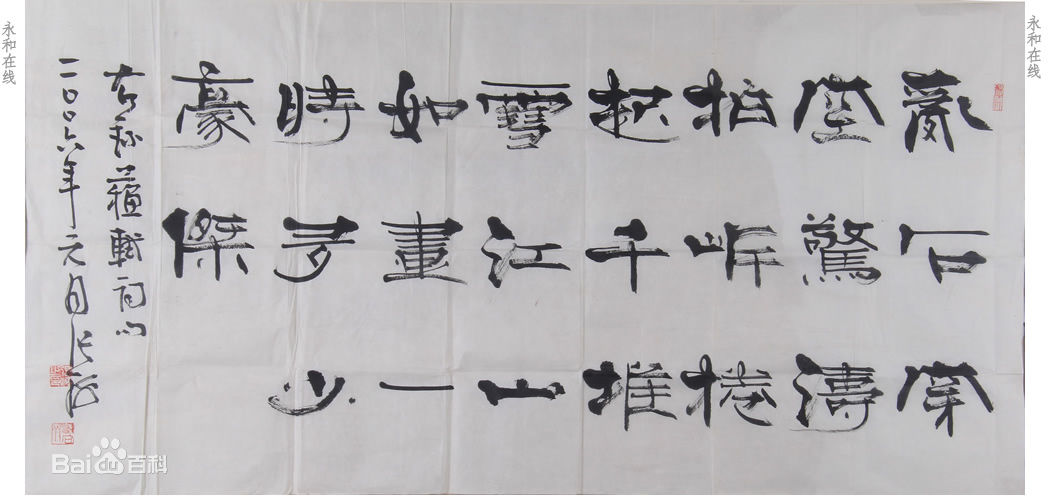 永和在线
亂石穿
空驚濤
拍岸捲
起千堆
雪江山
如畫一
時多少
豪傑
右錄蘇軾詞
二〇〇六年元月張
永和在线
Bai du 百科